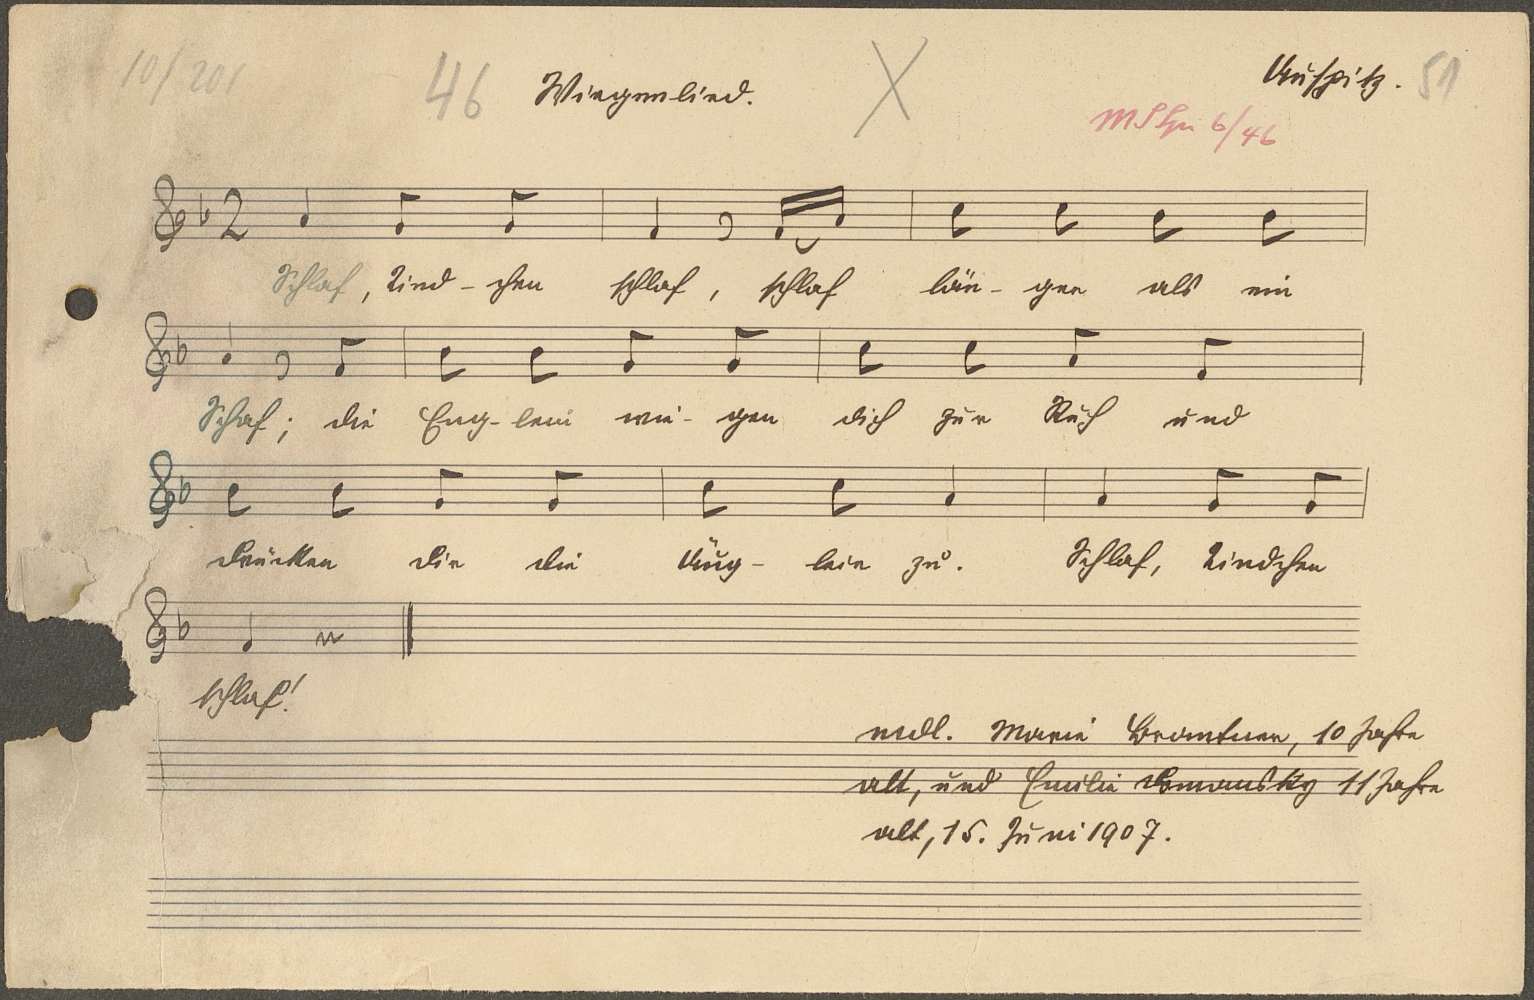 10/201 46 Wiegenlied. X Auspitz. 51
6/46
2
Schlaf, Kind-chen schlaf, schlaf län-ger als ein
Schlaf; die Eng-lein wie-gen dich zur Ruh und
drücken dir die Äug-lein zu. Schlaf, Kindchen
schlaf!
mdl. Marie Brantner, 10 Jahre
alt, und Emilie Domansky 11 Jahre
alt, 15. Juni 1907.